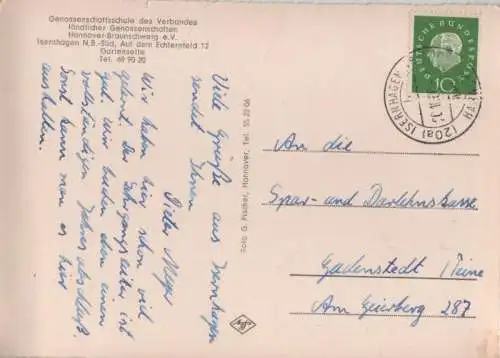 Genossenschaftsschule des Verbandes
ländlicher Genossenschaften
Hannover-Braunschweig e.V.
Isernhagen N.B.-Süd, Auf dem Echternfeld 12
Gartenseite
Tel. 69 90 20
Viele Grüße aus Isernhagen
sendet Ihnen
Dieter Meyer
Wir haben hier schon viel
gelernt. Der Lehrgangsleiter ist
gut. Wir buchen eben einen
vollständigen Jahresabschluß.
Sonst kann man es hier
aushalten.
Foto G. Fischer, Hannover, Tel. 55 22 06
Agfa
DEUTSCHE BUNDESPOST
10
(20a) ISERNHAGEN
An die
Spar- und Darlehnskasse
Gadenstedt / Peine
Am Geiersberg 287